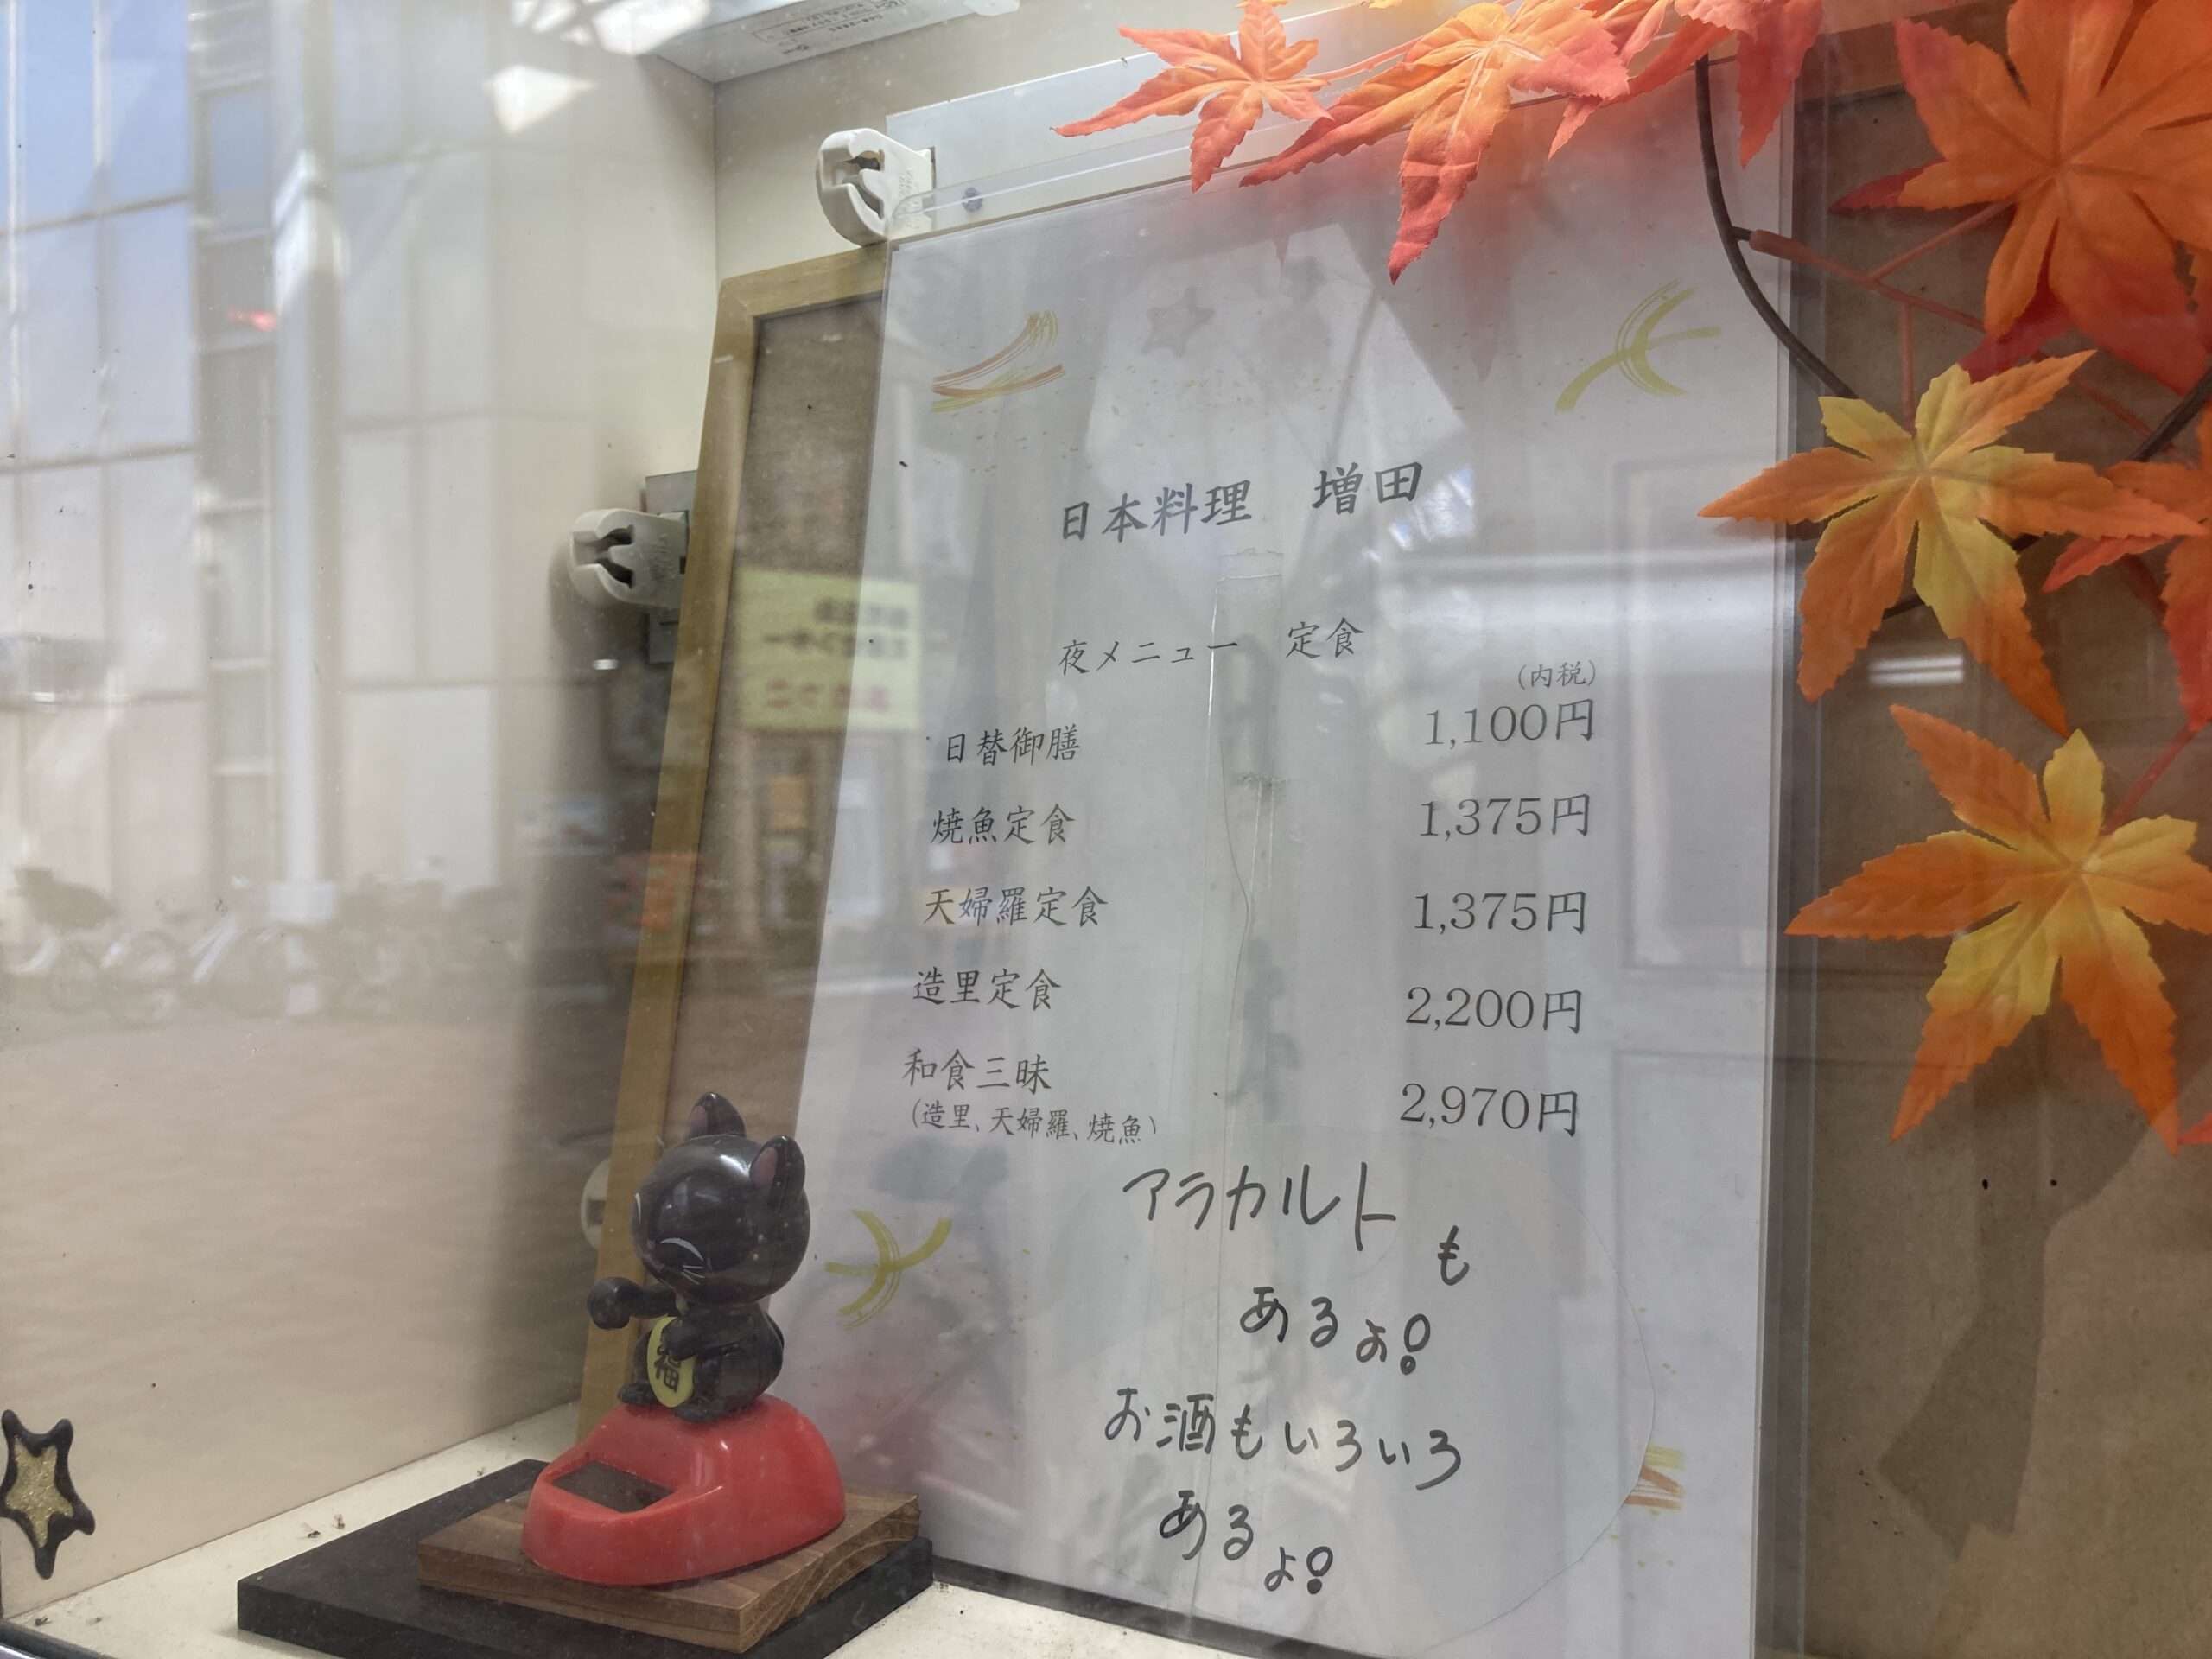 日本料理　増田
夜メニュー　定食
(内税)
日替御膳　1,100円
焼魚定食　1,375円
天婦羅定食　1,375円
造里定食　2,200円
和食三昧　2,970円
(造里、天婦羅、焼魚)
アラカルトも
あるよ!
お酒もいろいろ
あるよ!
福